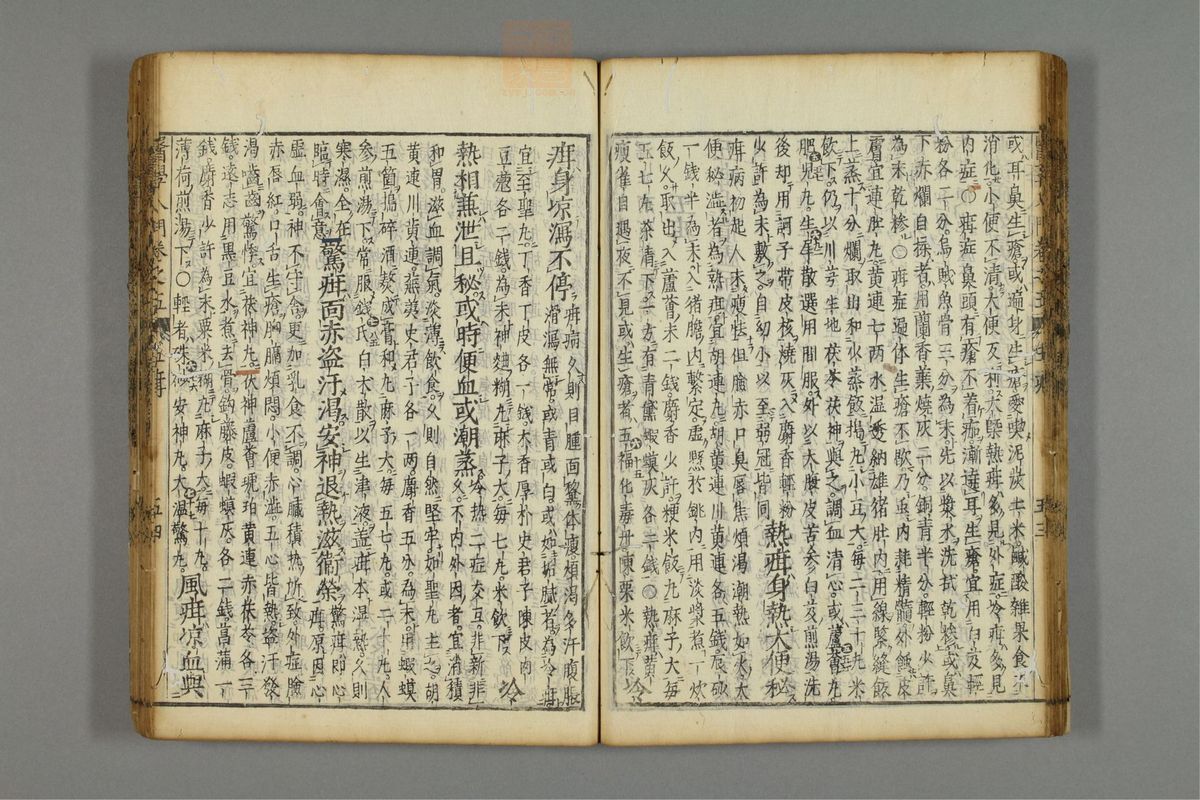 或耳臭生瘡或遍身生瘡愛喫泥炭生米鹹酸雜果食不
消化小便不清大便反利大槩熱疳多見外症冷疳多見
内症○疳症鼻頭有瘡不着痂漸遶耳生瘡宜用白芨輕
粉各二分烏賊魚骨三分為末先以漿水洗拭乾糝或鼻
下赤爛自揉者用蘭香葉燒灰二分銅青半分輕粉少許
為末乾糝○疳症遍体生瘡不歇乃虫内耗精髓外蝕皮
膚宜連肚丸黄連七兩水湿透納雄猪肚内用線緊縫飯
上蒸十分爛取出和少蒸飯搗丸小豆大毎二三十丸米
飲下仍以川芎生地茯苓茯神與之調血清心或蘆薈丸
肥児丸生犀散選用間服外以大腹皮苦参白芨煎湯洗
後却用訶子帯皮核燒灰入麝香輕粉
少許為末敷之自幼小以至弱冠皆同 熱疳身熱大便秘
疳病初起人未瘦怯但臉赤口臭唇焦煩渴潮熱如火大
便秘澁者為熱疳宜胡連丸胡黄連川黄連各五錢辰砂
一錢半為末入猪膽内繫定虚懸於銚内用淡漿煮一炊
飯久取出入蘆薈末二錢麝香少許粳米飯丸麻子大毎
五七丸茶清下一方有青黛蝦蟆灰各二錢○熱疳黄
瘦雀目遇夜不見或生瘡者五福化毒丹陳粟米飲下 冷
疳身凉瀉不停 疳病久則目腫面黧体瘦煩渴多汗腹脹
滑瀉無常或青或白或如垢膩者為冷疳
宜至聖丸丁香丁皮各一錢木香厚朴史君子陳皮肉
豆蔲各二錢為末神麯糊丸麻子大毎七丸米飲下 冷
熱相兼泄且秘或時便血或潮蒸 冷熱二症交互非新非
久不内外因者宜消積
和胃滋血調氣淡薄飲食久則自然堅牢如聖丸主之胡
黄連川黄連蕪荑史君子各一兩麝香五分為末用蝦蟆
五箇搗碎酒熬成膏和丸麻子大毎五七丸或二十丸人
参煎湯下常服錢氏白朮散以生津液盖疳本湿熱久則
寒濕全在
臨時會意 驚疳面赤盗汗渴安神退熱滋衞榮 驚疳即心
疳原因心
虚血弱神不守舍更加乳食不調心臓積热所致外症臉
赤唇紅口舌生瘡胸膈煩悶小便赤澁五心皆熱盗汗發
渴囓齒驚悸宜茯神丸茯神蘆薈琥珀黄連赤茯苓各三
錢遠志用黒豆水煮去骨鈎藤皮蝦蟆灰各二錢菖蒲一
錢麝香少許為末粟米糊丸麻子大毎十丸
薄荷煎湯下○輕者朱砂安神丸大温驚丸 風疳凉血與
醫學入門卷之五